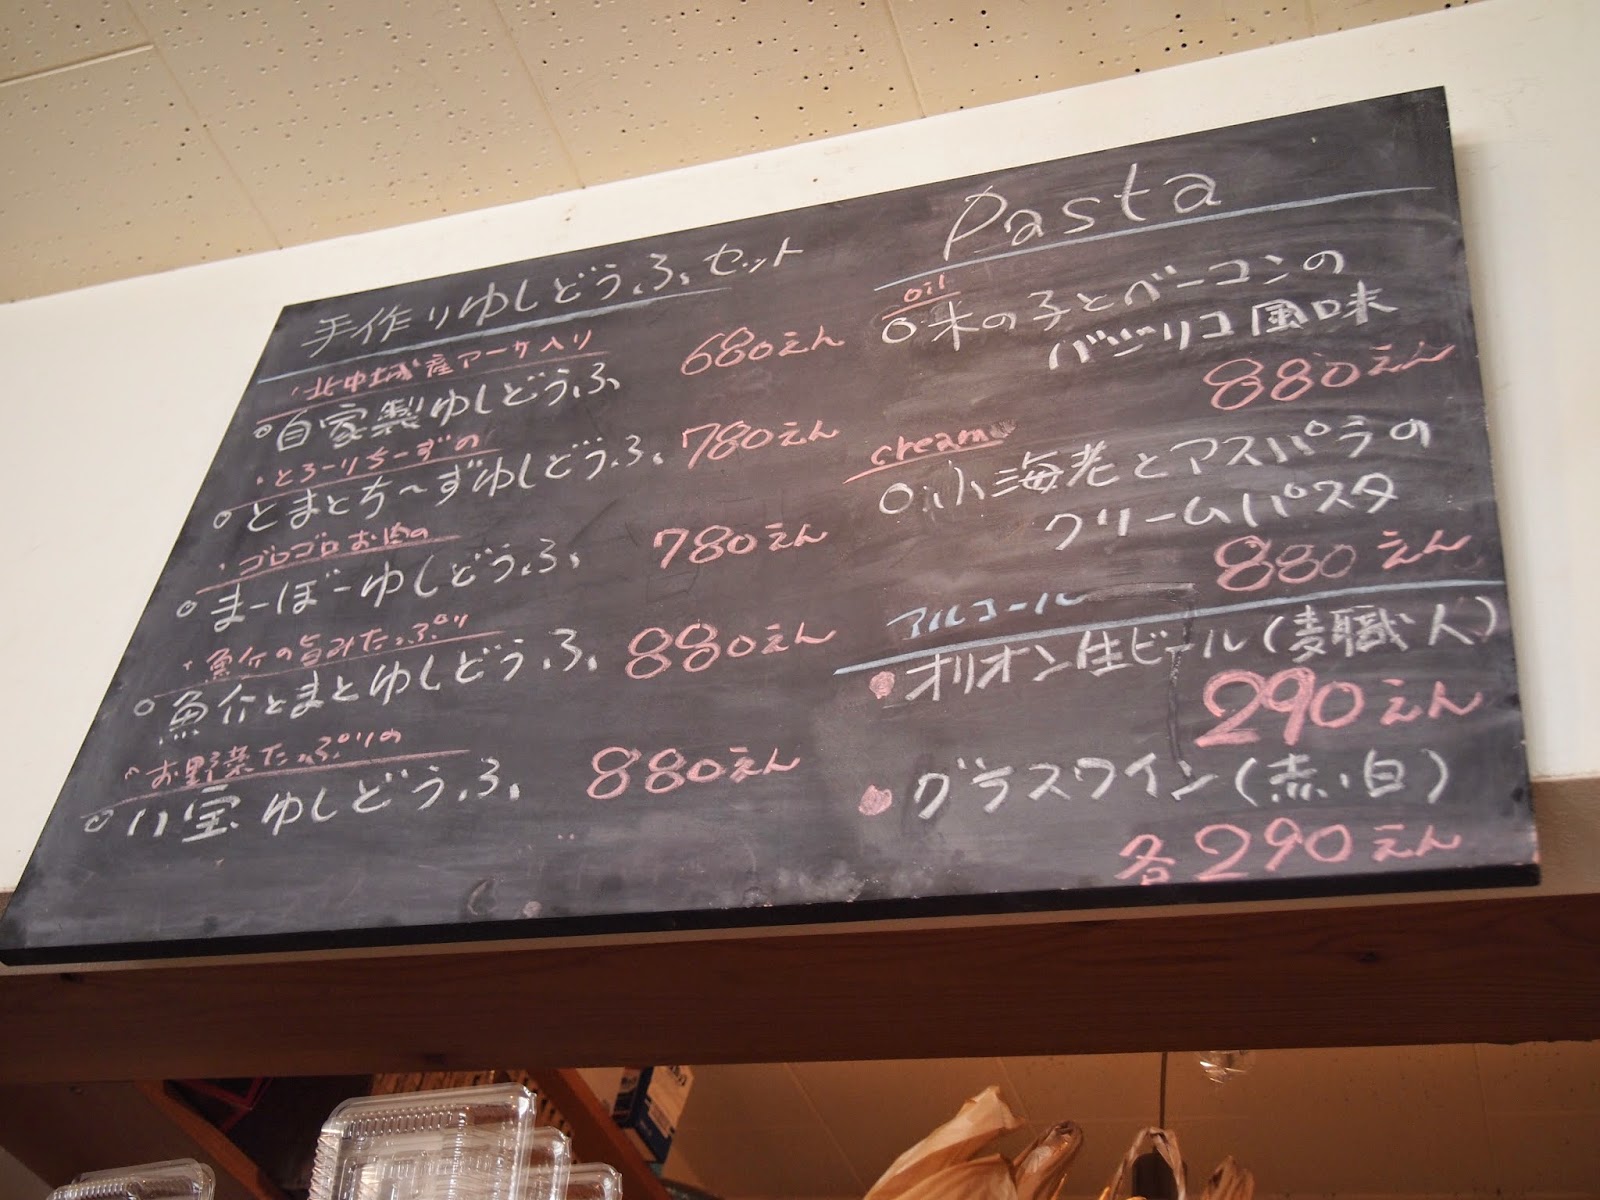 手作りゆしどうふセット
・北中城産アーサ入り
○自家製ゆしどうふ 680えん
・とろーりちーずの
○とまとち〜ずゆしどうふ 780えん
・ゴロゴロお肉の
○まーぼーゆしどうふ 780えん
・魚介の旨みたっぷり
○魚介とまとゆしどうふ 880えん
・お野菜たっぷりの
○八宝ゆしどうふ 880えん
Pasta
oil
○木の子とベーコンの
バジリコ風味
880えん
cream
○小海老とアスパラの
クリームパスタ
880えん
アルコール
●オリオン生ビール(麦職人)
290えん
●グラスワイン(赤、白)
各290えん